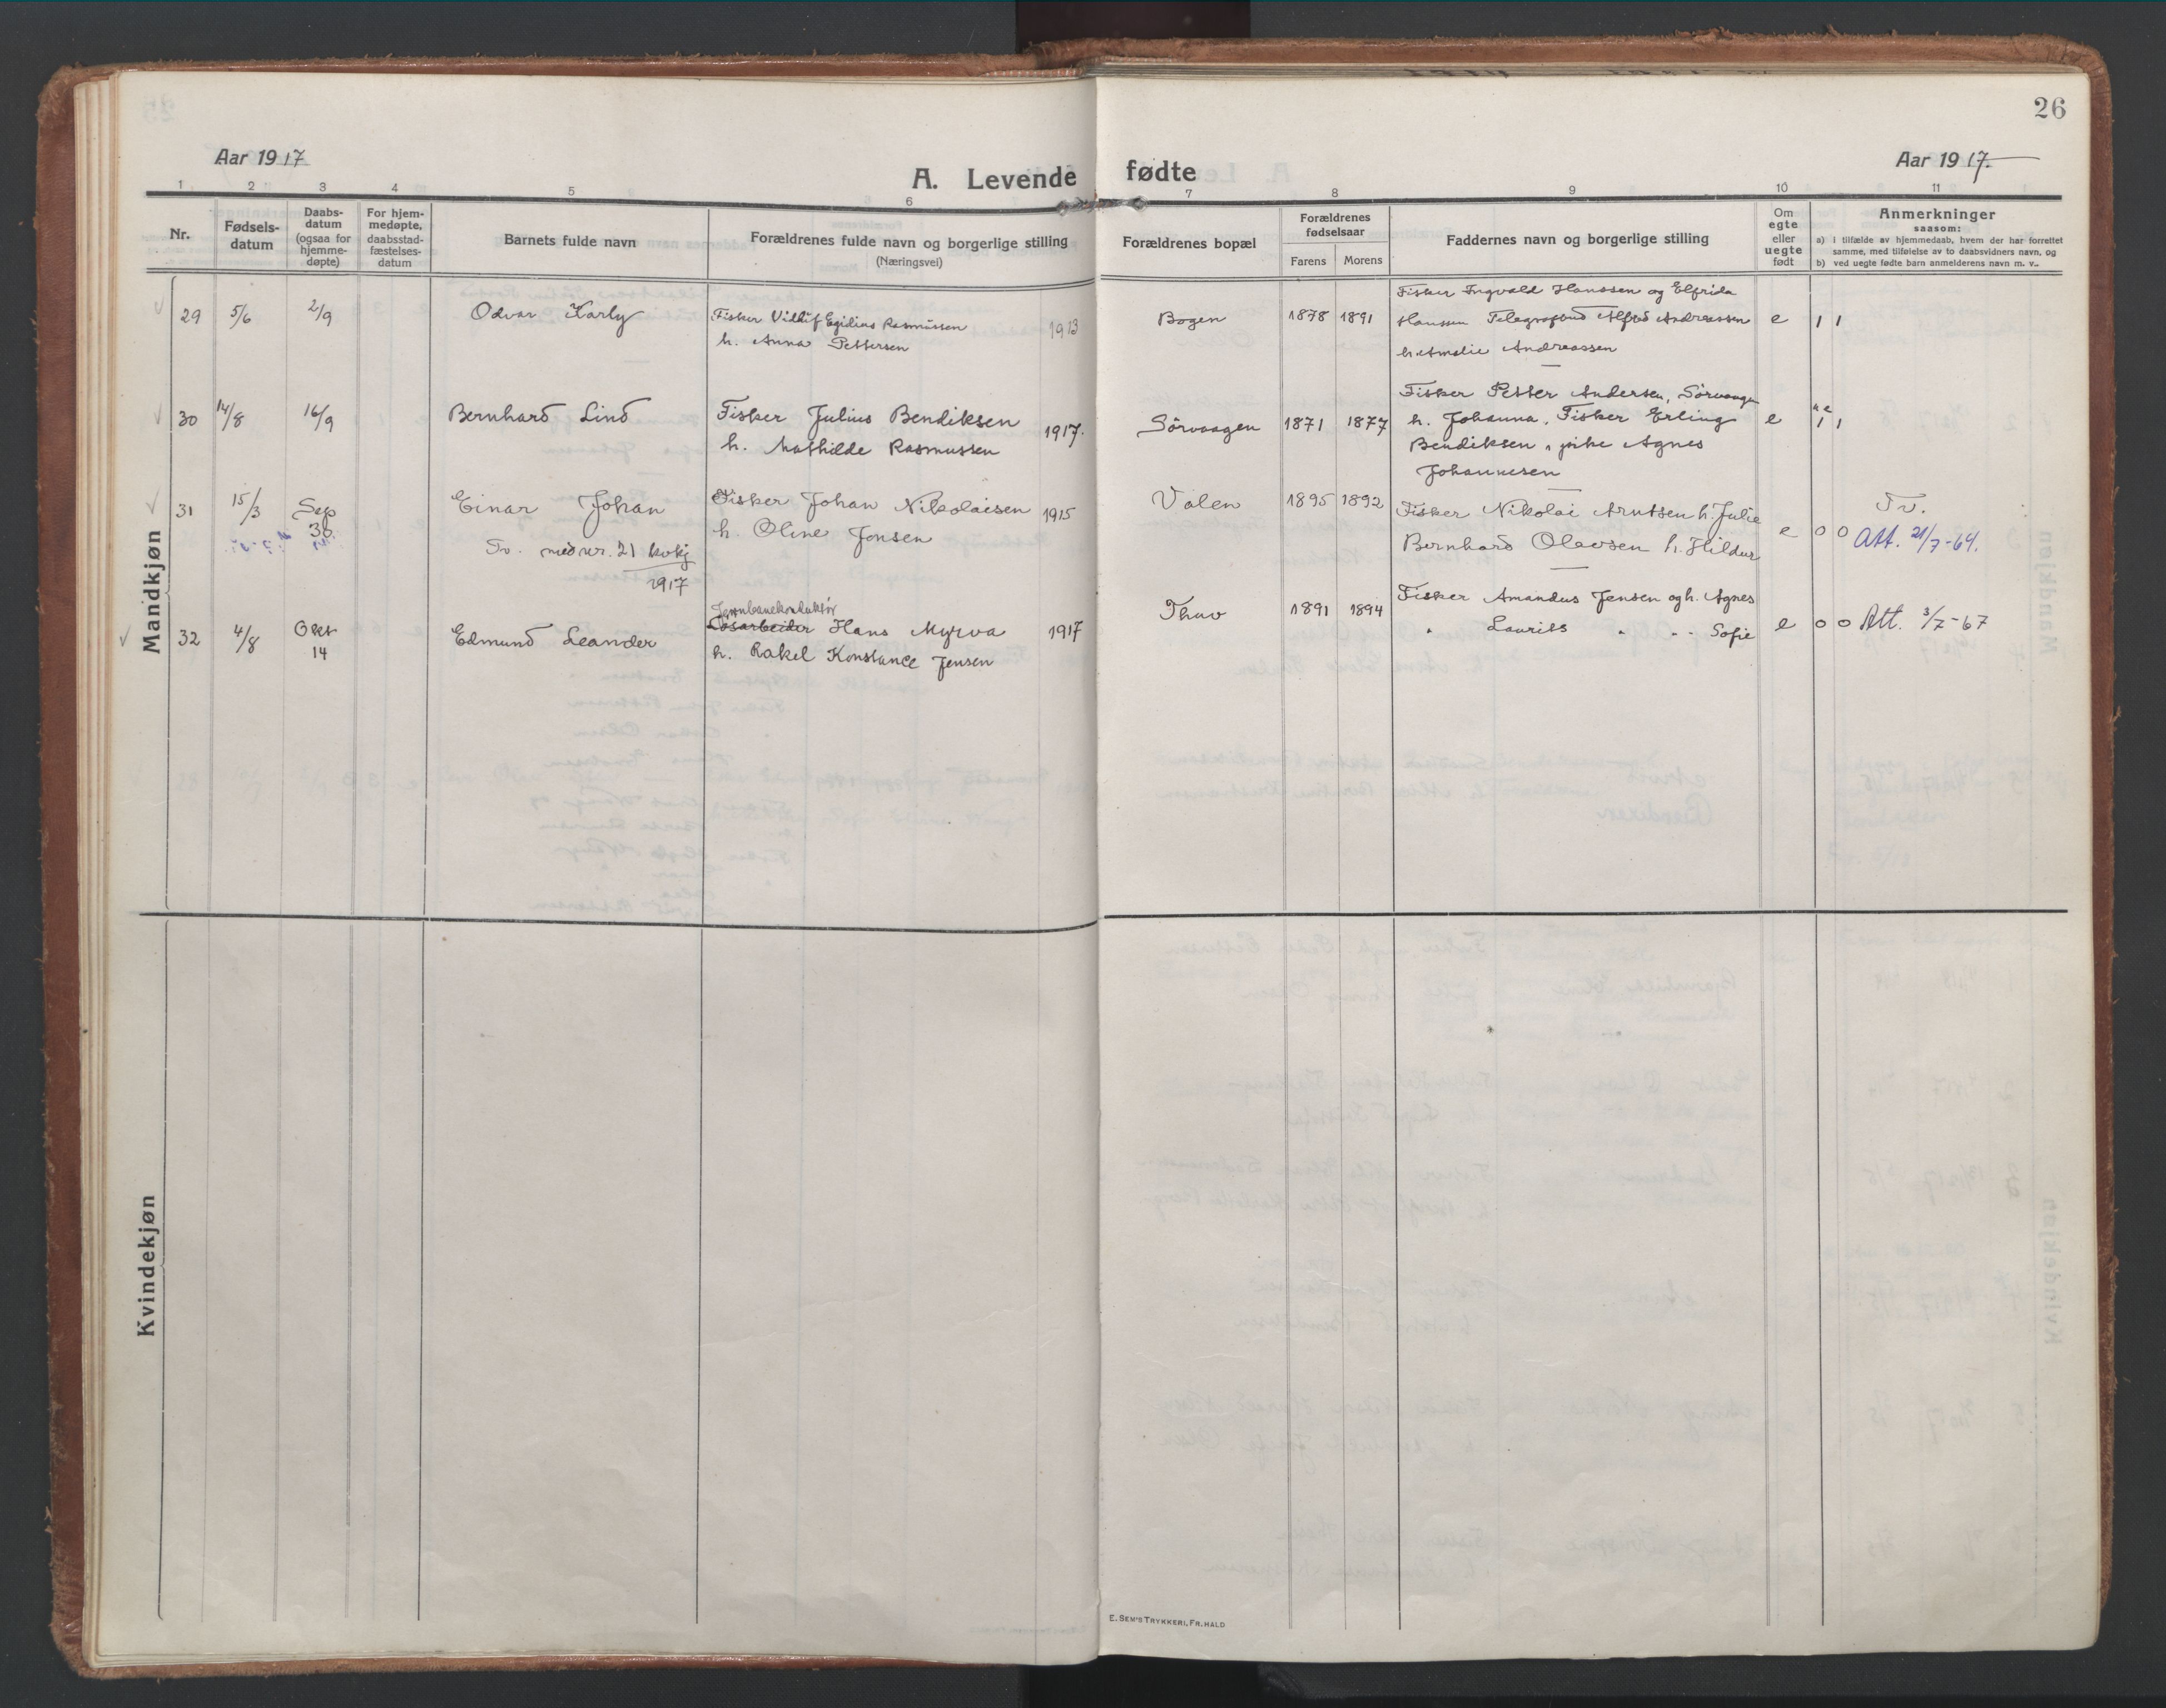 26
Aar 1917
A. Levende fødte
Aar 1917.
1 2 3 4 5 6 7 8 9 10 11
Nr.
Fødsels-
datum
Daabs-
datum
(ogsaa for
hjemme-
døpte)
For hjem-
medøpte,
daabsstad-
fæstelses-
datum
Barnets fulde navn
Forældrenes fulde navn og borgerlige stilling
(Næringsvei)
Forældrenes bopæl
Forældrenes
fødselsaar
Farens Morens
Faddernes navn og borgerlige stilling
Om
egte
eller
uegte
født
Anmerkninger
saasom:
a) i tilfælde av hjemmedaab, hvem der har forrettet
samme, med tilføielse av to daabsvidners navn, og
b) ved uegte fødte barn anmelderens navn m. v..
Mandkjøn
29 5/6 2/9 Odvar Karly
Fisker Vidkif Egidius Rasmussen 1913
h. Anna Pettersen
Bogen 1878 1891
Fisker Ingvald Hanssen og Elfrida
Hanssen Telegrafbud Alfred Andreassen e 1 1
h. Amalie Andreassen
30 14/8 16/9 Bernhard Lind
Fisker Julius Bendiksen 1917.
h. Mathilde Rasmussen
Sørvaagen 1871 1877
Fisker Petter Andersen, Sørvaagen
h. Johanna, Fisker Erling e 1 1
Bendiksen, pike Agnes
Johannesen
31 15/3 Sep
30
Einar Johan
Tv. med nr. 21 kvkj
1917
Fisker Johan Nikolaisen 1915
h. Oline Jonsen
Valen 1895 1892
Fisker Nikolai Arntsen h. Julie
Bernhard Olavsen h. Hildur e 0 0
Tv.
Att. 21/7-64.
32 4/8 Okt
14
Edmund Leander
Jernbanekonduktør
Løsarbeider Hans Myrva 1917
h. Rakel Konstance Jensen
Thuv 1891 1894
Fisker Amandus Jensen og h. Agnes
" Laurits " " - Sofie e 0 0 Att. 3/7-67
Kvindekjøn
E. SEM'S TRYKKERI, FR.HALD